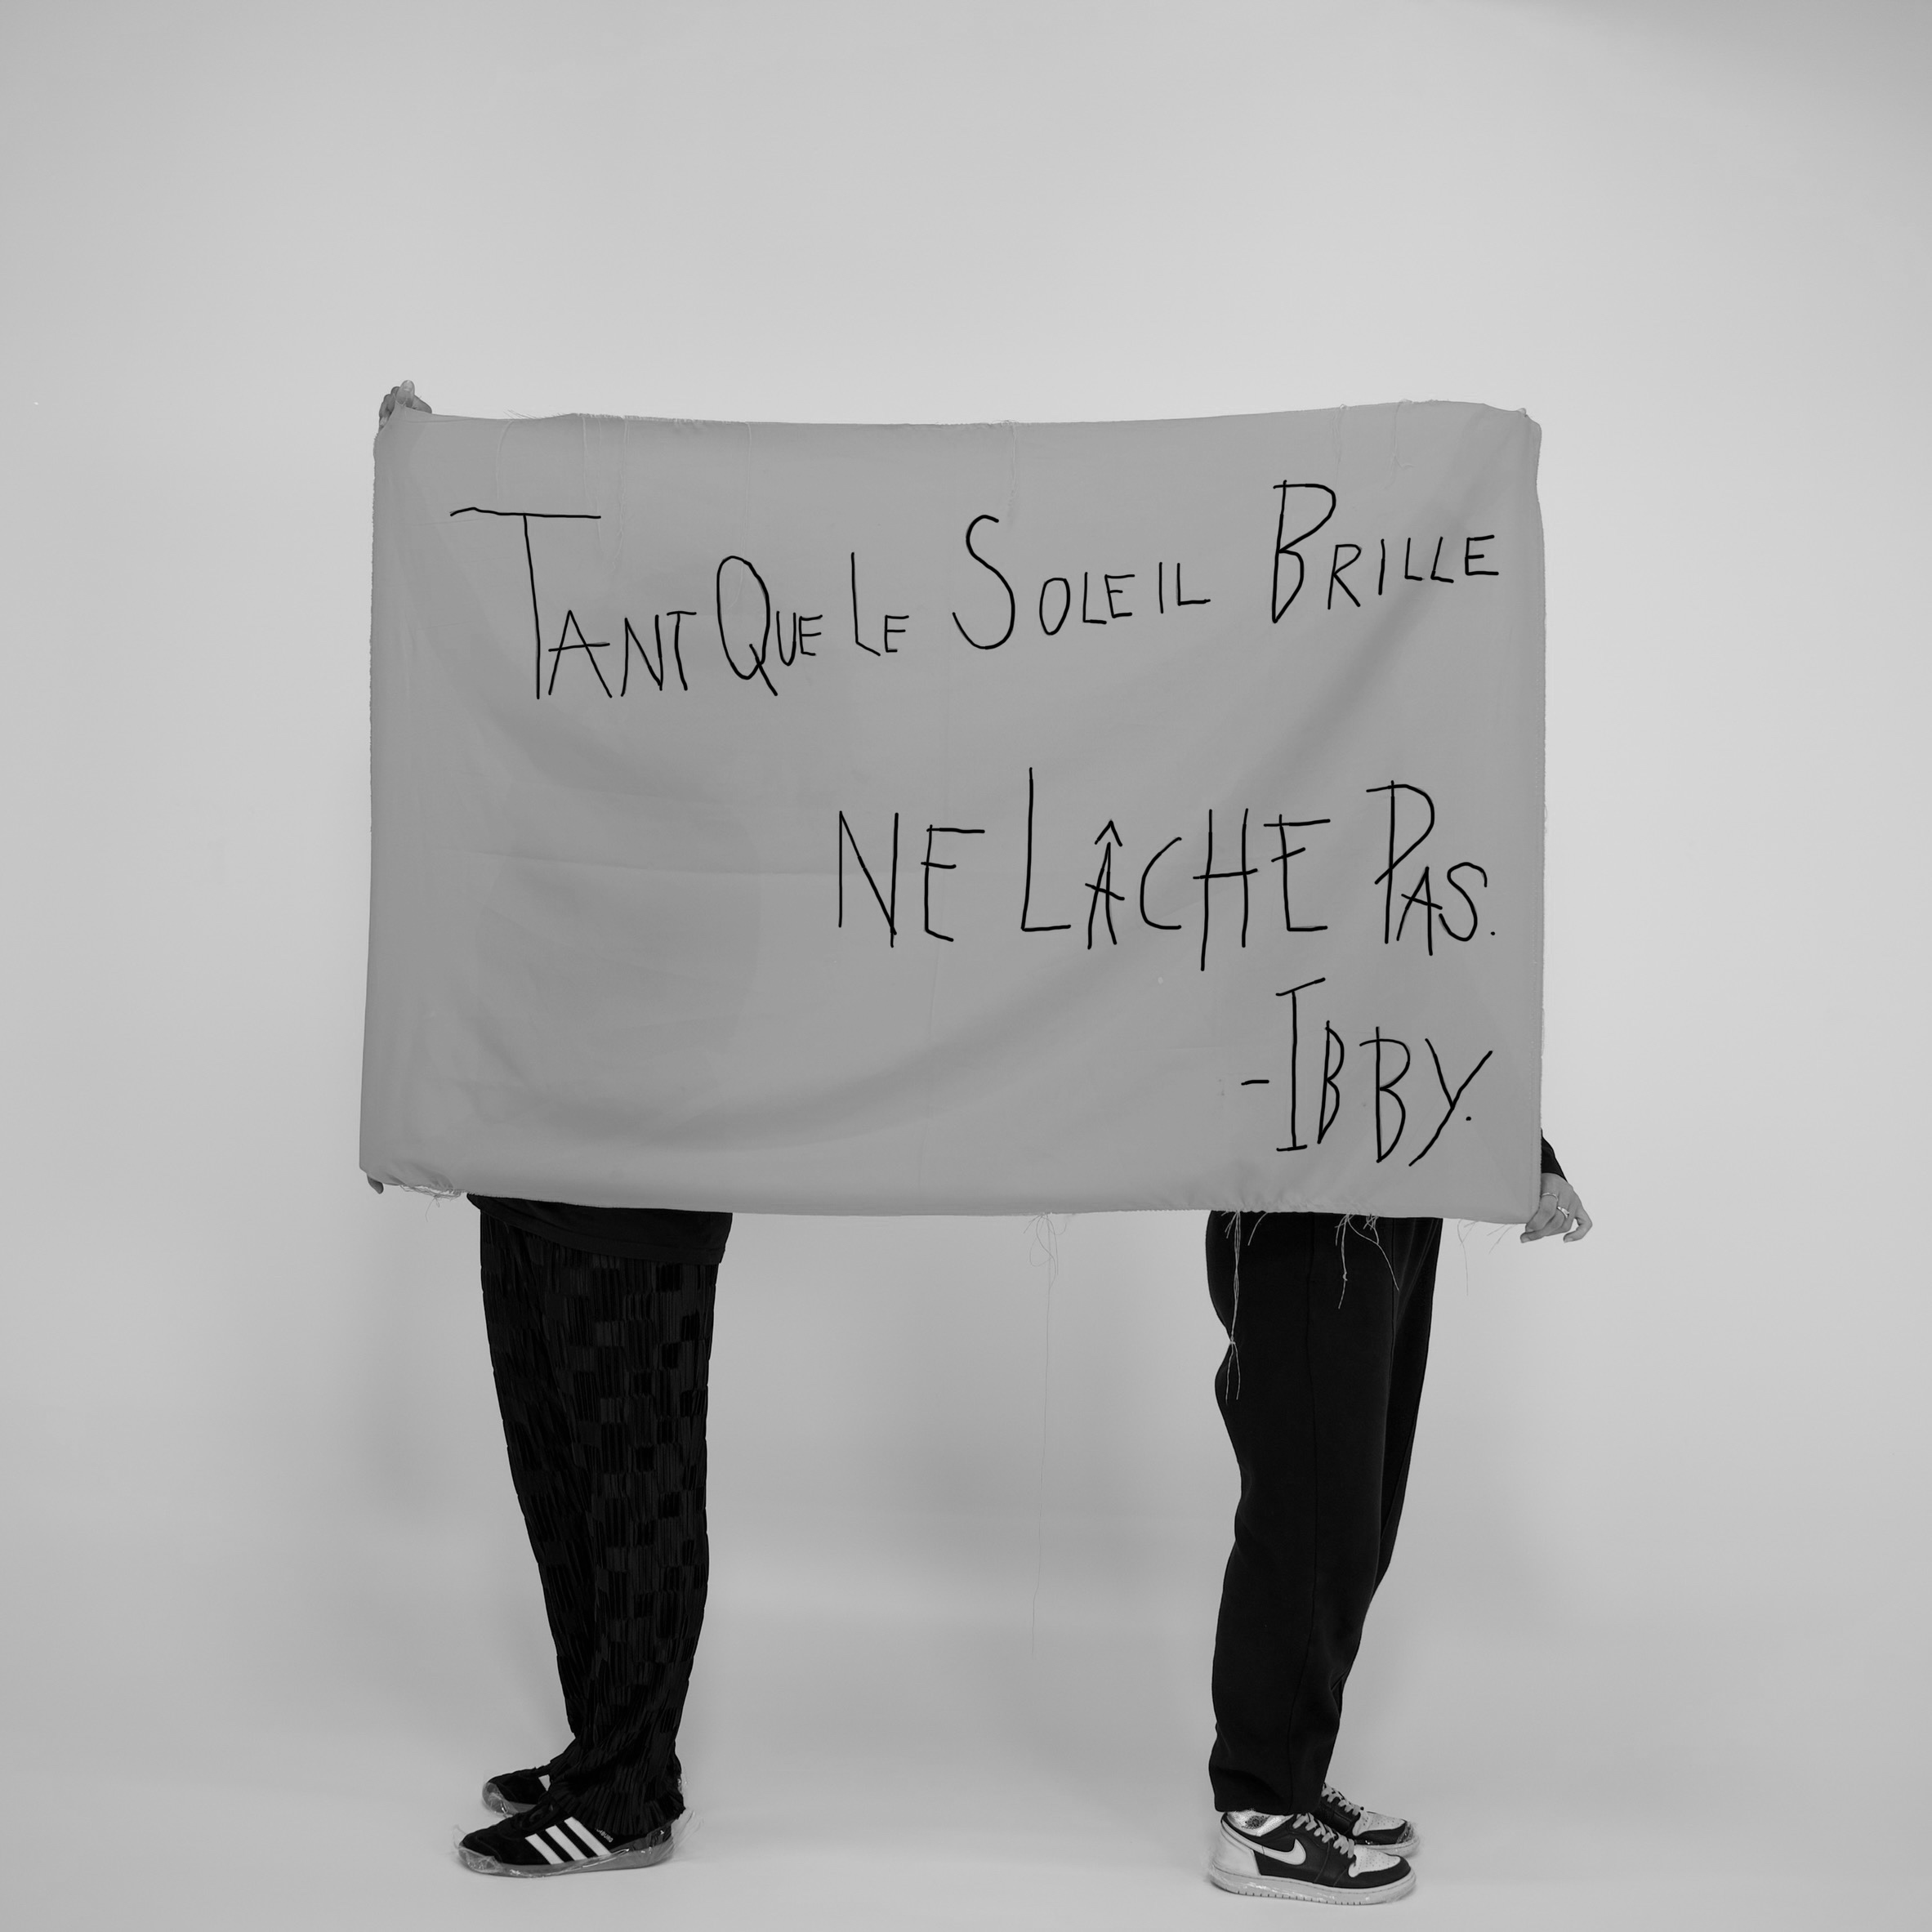 Tant Que Le Soleil Brille
NE LÂCHE PAS.
-IBBY.